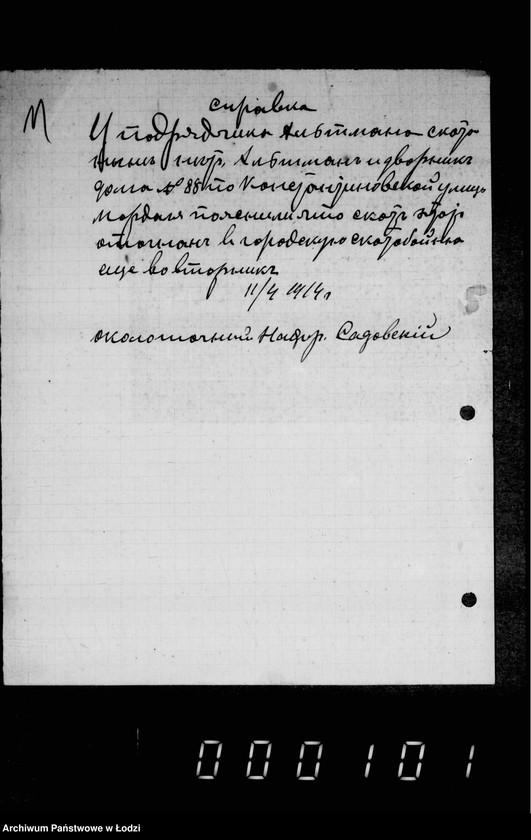 справка
У подрядчика Альтмана скота
нынѣ нѣтъ. Альтманъ и дворникъ
дома № 88 по Константиновской улицѣ
пояснили что скотъ этотъ
отогнанъ в городскую скотобойню
еще во вторникъ
11/4 1914 г
околоточный Надзир. Садовскій
000101
Archiwum Państwowe w Łodzi